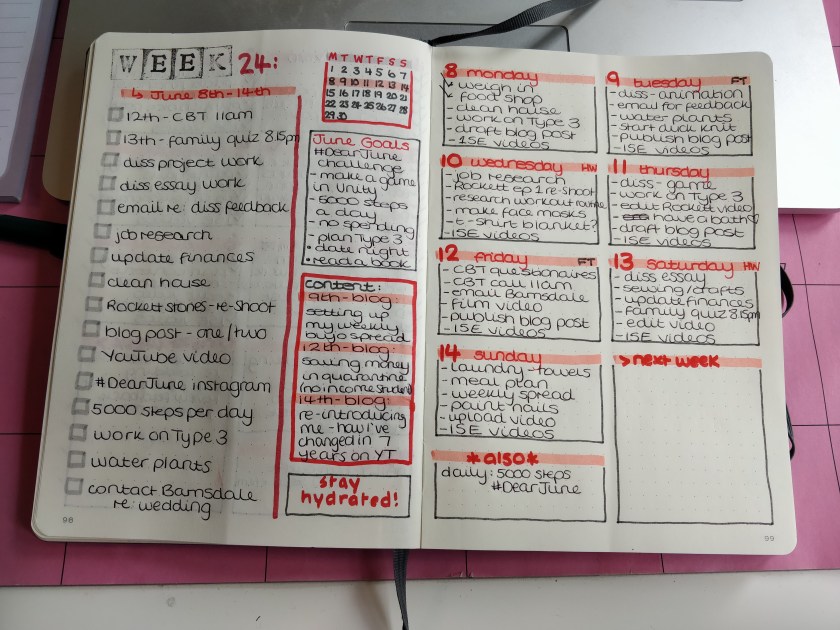 WEEK 24:
↳ June 8th-14th
12th - CBT 11am
13th - family quiz 8.15pm
diss project work
diss essay work
email re: diss feedback
job research
update finances
clean house
Rockett Stones - re-shoot
blog post - one/two
YouTube video
#DearJune instagram
5000 steps per day
work on Type 3
water plants
contact Barnsdale
re: wedding
98
M T W T F S S
1 2 3 4 5 6 7
8 9 10 11 12 13 14
15 16 17 18 19 20 21
22 23 24 25 26 27 28
29 30
June Goals
#DearJune
challenge
- make a game
in Unity
- 5000 steps
a day
- no spending
- plan Type 3
• date night
• read a book
content:
9th - blog:
setting up
my weekly
bujo spread
12th - blog:
saving money
in quarantine
(no income student)
14th - blog:
re-introducing
me - how I've
changed in 7
years on YT
stay
hydrated!
8 monday
- weigh in
- food shop
- clean house
- work on Type 3
- draft blog post
- 1SE videos
9 tuesday FT
- diss - animation
- email for feedback
- water plants
- start duck knit
- publish blog post
- 1SE videos
10 wednesday HW
- job research
- Rockett ep 1 re-shoot
- research workout routine
- make face masks
- t-shirt blanket?
- 1SE videos
11 thursday
- diss - game
- work on Type 3
- edit Rockett video
- have a bath♡
- draft blog post
- 1SE videos
12 friday FT
- CBT questionaires
- CBT call 11am
- email Barnsdale
- film video
- publish blog post
- 1SE videos
13 saturday HW
- diss essay
- sewing/crafts
- update finances
- family quiz 8.15pm
- edit video
- 1SE videos
14 sunday
- laundry - towels
- meal plan
- weekly spread
- paint nails
- upload video
- 1SE videos
> next week
*also*
daily: 5000 steps
#DearJune
99